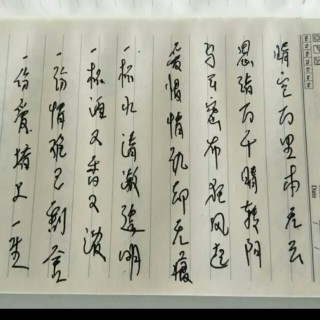 晴空万里本无云
思绪万千晴转阴
乌云密布狂风起
爱恨情仇却无痕
一杯水清澈透明
一杯酒又香又浓
一份情难已割舍
一份爱 上一生
Date